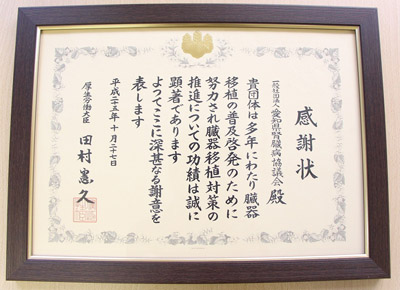 感謝状
一般社団法人愛知県腎臓病協議会 殿
貴団体は多年にわたり臓器
移植の普及啓発のために
努力され臓器移植対策の
推進についての功績は誠に
顕著であります
よってここに深甚なる謝意を
表します
平成二十五年十月二十七日
厚生労働大臣 田村憲久